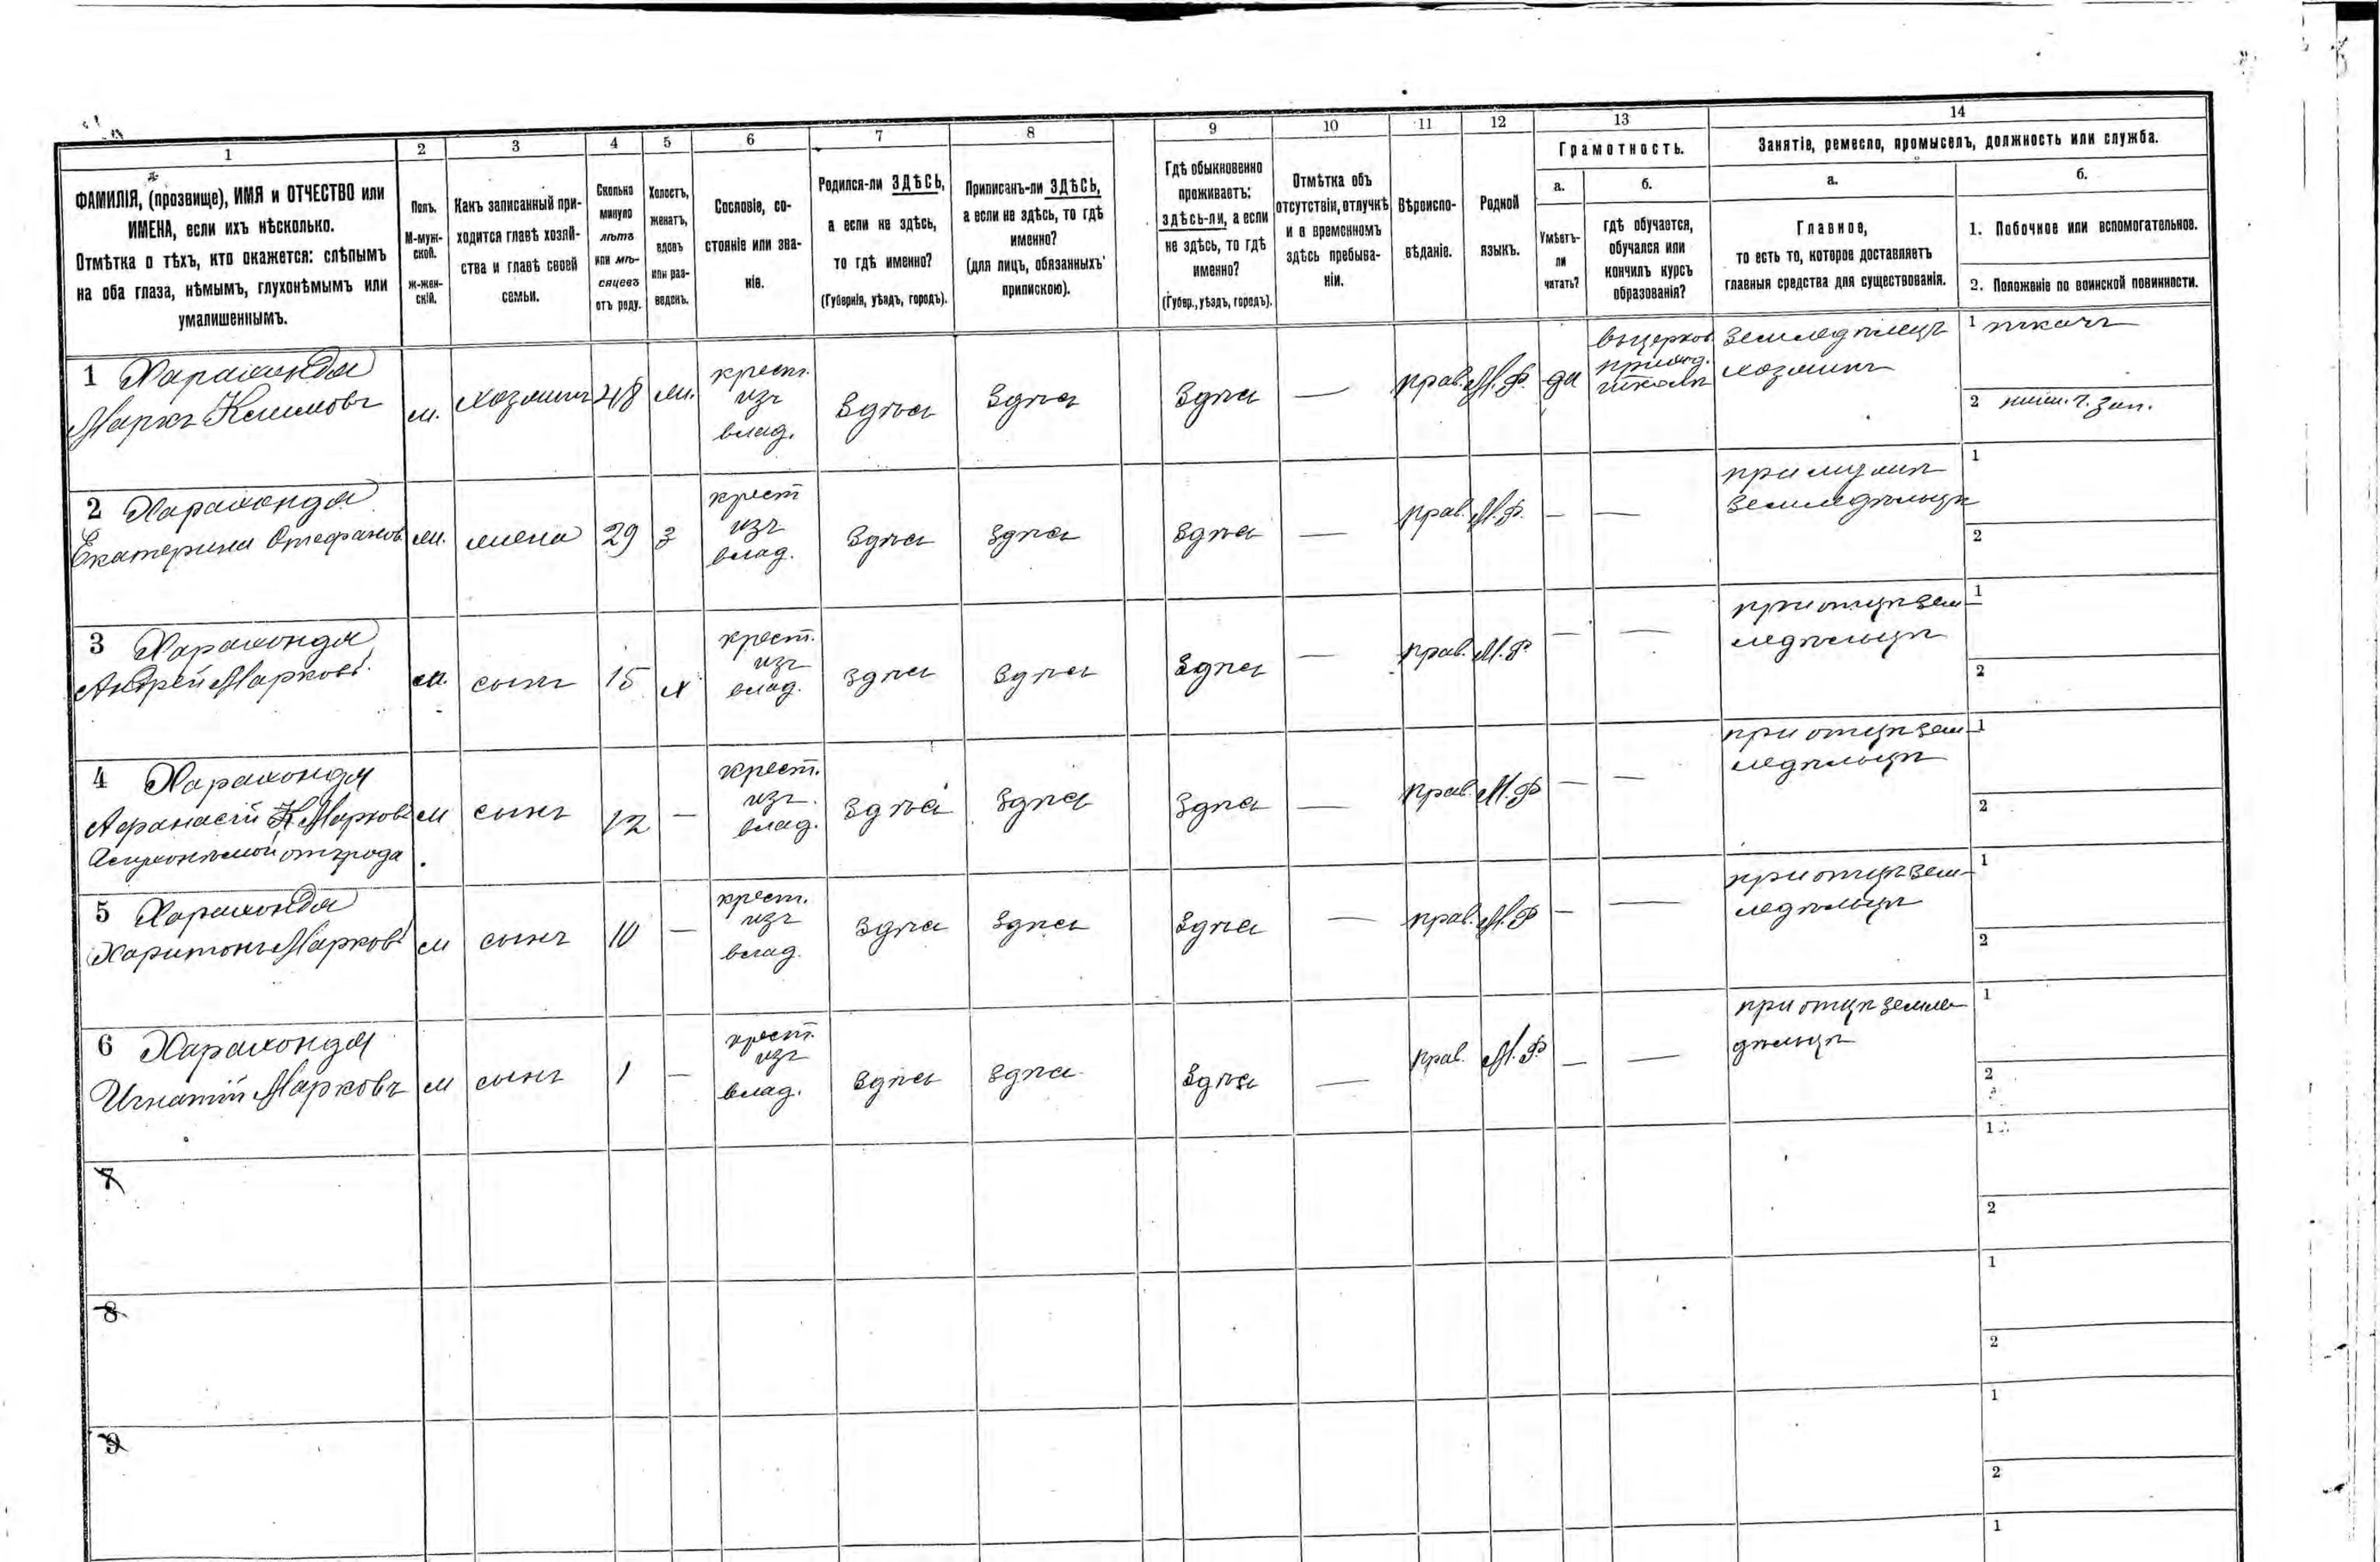 1 2 3 4 5 6 7 8 9 10 11 12 13 14
ФАМИЛІЯ, (прозвище), ИМЯ и ОТЧЕСТВО или
ИМЕНА, если ихъ нѣсколько.
Отмѣтка о тѣхъ, кто окажется: слѣпымъ
на оба глаза, нѣмымъ, глухонѣмымъ или
умалишеннымъ.
Полъ.
М-муж-
ской.
ж-жен-
скій.
Какъ записанный при-
ходится главѣ хозяй-
ства и главѣ своей
семьи.
Сколько
минуло
лѣтъ
или мѣ-
сяцевъ
отъ роду.
Холостъ,
женатъ,
вдовъ
или раз-
веденъ.
Сословіе, со-
стояніе или зва-
ніе.
Родился-ли ЗДѢСЬ,
а если не здѣсь,
то гдѣ именно?
(Губернія, уѣздъ, городъ).
Приписанъ-ли ЗДѢСЬ,
а если не здѣсь, то гдѣ
именно?
(для лицъ, обязанныхъ
припискою).
Гдѣ обыкновенно
проживаетъ:
здѣсь-ли, а если
не здѣсь, то гдѣ
именно?
(Губер., уѣздъ, городъ).
Отмѣтка объ
отсутствіи, отлучкѣ
и о временномъ
здѣсь пребыва-
ніи.
Вѣроиспо-
вѣданіе.
Родной
языкъ.
Грамотность.
а.
Умѣетъ-
ли
читать?
б.
гдѣ обучается,
обучался или
кончилъ курсъ
образованія?
Занятіе, ремесло, промыселъ, должность или служба.
а.
Главное,
то есть то, которое доставляетъ
главныя средства для существованія.
б.
1. Побочное или вспомогательное.
2. Положеніе по воинской повинности.
1 Харахонда
Маркъ Климовъ
м.
хозяинъ
48
ж.
крест.
изъ
влад.
Здѣсь
Здѣсь
Здѣсь
—
прав.
М.Ф.
да
въ церков.
приход.
школѣ
Земледѣлецъ
хозяинъ
1 ткачъ
2
2 Харахонда
Екатерина Стефанов.
жена
29
З
крест
изъ
влад.
Здѣсь
Здѣсь
Здѣсь
—
прав.
М.Ф.
—
—
при мужѣ
земледѣльцѣ
1
2
3 Харахонда
Андрей Марковъ
м.
сынъ
15
х
крест.
изъ
влад.
здѣсь
здѣсь
Здѣсь
—
прав.
М.Ф.
—
—
при отцѣ зем-
ледѣльцѣ
1
2
4 Харахонда
Афанасій Марковъ
отъ рода
м
сынъ
12
—
крест.
изъ
влад.
Здѣсь
Здѣсь
Здѣсь
—
прав.
М.Ф
—
—
при отцѣ зем-
ледѣльцѣ
1
2
5 Харахонда
Харитонъ Марковъ
м
сынъ
10
—
крест.
изъ
влад.
Здѣсь
Здѣсь
Здѣсь
—
прав.
М.Ф
—
—
при отцѣ зем-
ледѣльцѣ
1
2
6 Харахонда
Игнатій Марковъ
м
сынъ
1
—
крест.
изъ
влад.
Здѣсь
здѣсь
Здѣсь
—
прав.
М.Ф
—
—
при отцѣ земле-
дѣльцѣ
1
2
7
1
2
8
1
2
9
1
2
1